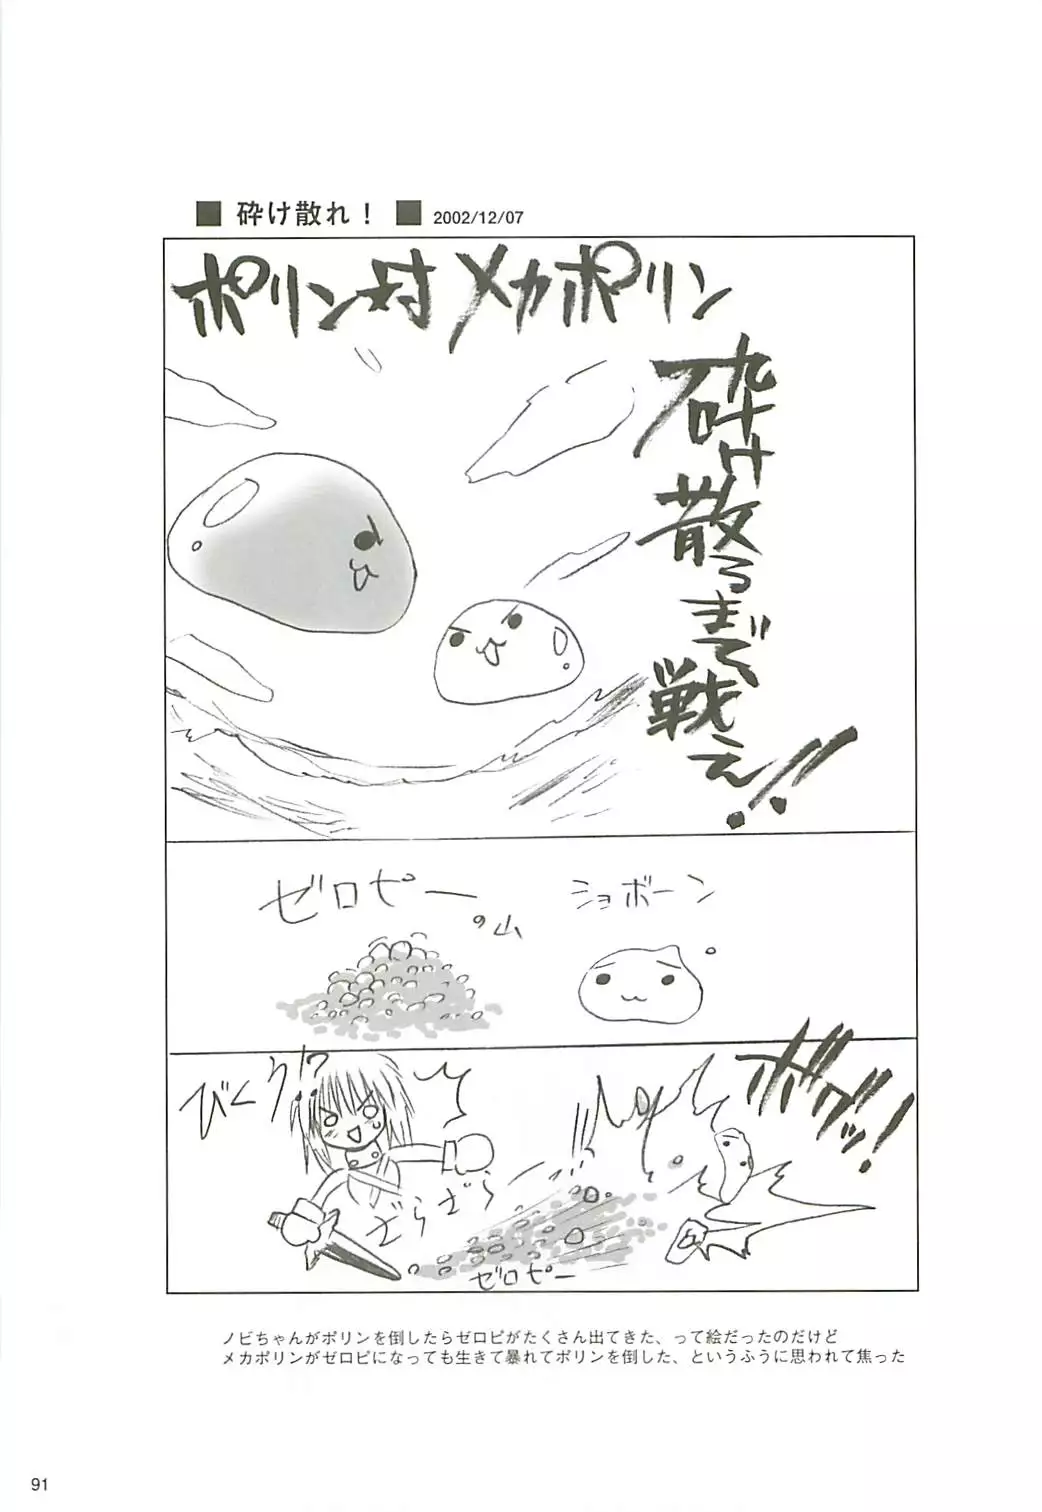 ■ 砕け散れ！ ■ 2002/12/07
ポリン対メカポリン
砕け散るまで戦え!!
ゼロピーの山
ショボーン
ボグッ!
びくぅ!?
ざらざら
ゼロピー
ノビちゃんがポリンを倒したらゼロピがたくさん出てきた、って絵だったのだけど
メカポリンがゼロピになっても生きて暴れてポリンを倒した、というふうに思われて焦った
91